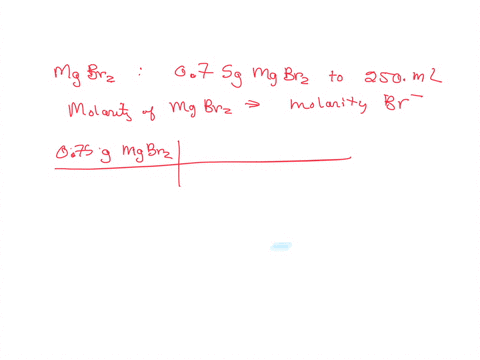 MgBr₂ : 0.75g MgBr₂ to 250. mL
Molarity of MgBr₂ → molarity Br⁻
0.75 g MgBr₂